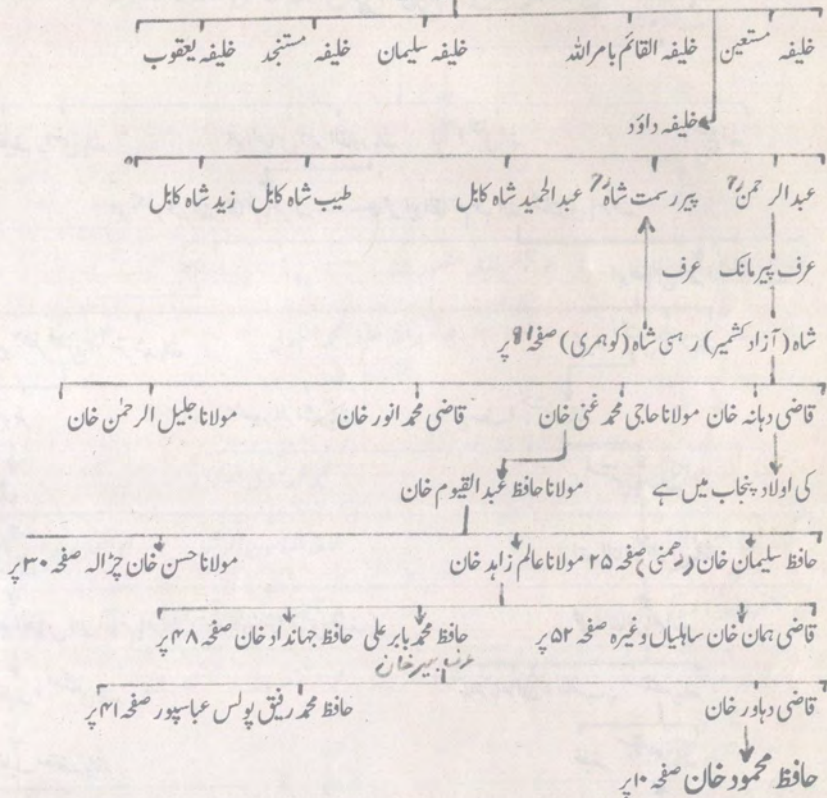 خلیفہ مستعین خلیفہ القائم بامراللہ خلیفہ سلیمان خلیفہ مستنجد خلیفہ یعقوب
خلیفہ داؤد
عبدالرحمنؒ پیر رسمت شاہؒ عبدالحمید شاہ کابل طیب شاہ کابل زید شاہ کابل
عرف پیر مانک عرف
شاہ (آزاد کشمیر) رسمی شاہ (کوہمری) صفحہ ۸۱ پر
قاضی دہانہ خان مولانا حاجی محمد غنی خان قاضی محمد انور خان مولانا جلیل الرحمٰن خان
کی اولاد پنجاب میں ہے مولانا حافظ عبدالقیوم خان
حافظ سلیمان خان (رھمنی) صفحہ ۲۵ مولانا عالم زاہد خان مولانا حسن خان چڑالہ صفحہ ۳۰ پر
قاضی ہمان خان ساہلیاں وغیرہ صفحہ ۵۲ پر حافظ محمد بابر علی حافظ جہانداد خان صفحہ ۴۸ پر
عرف ببر خان
قاضی دہاور خان حافظ محمد رفیق پولس عباسپور صفحہ ۴۱ پر
حافظ محمود خان صفحہ ۱۰ پر